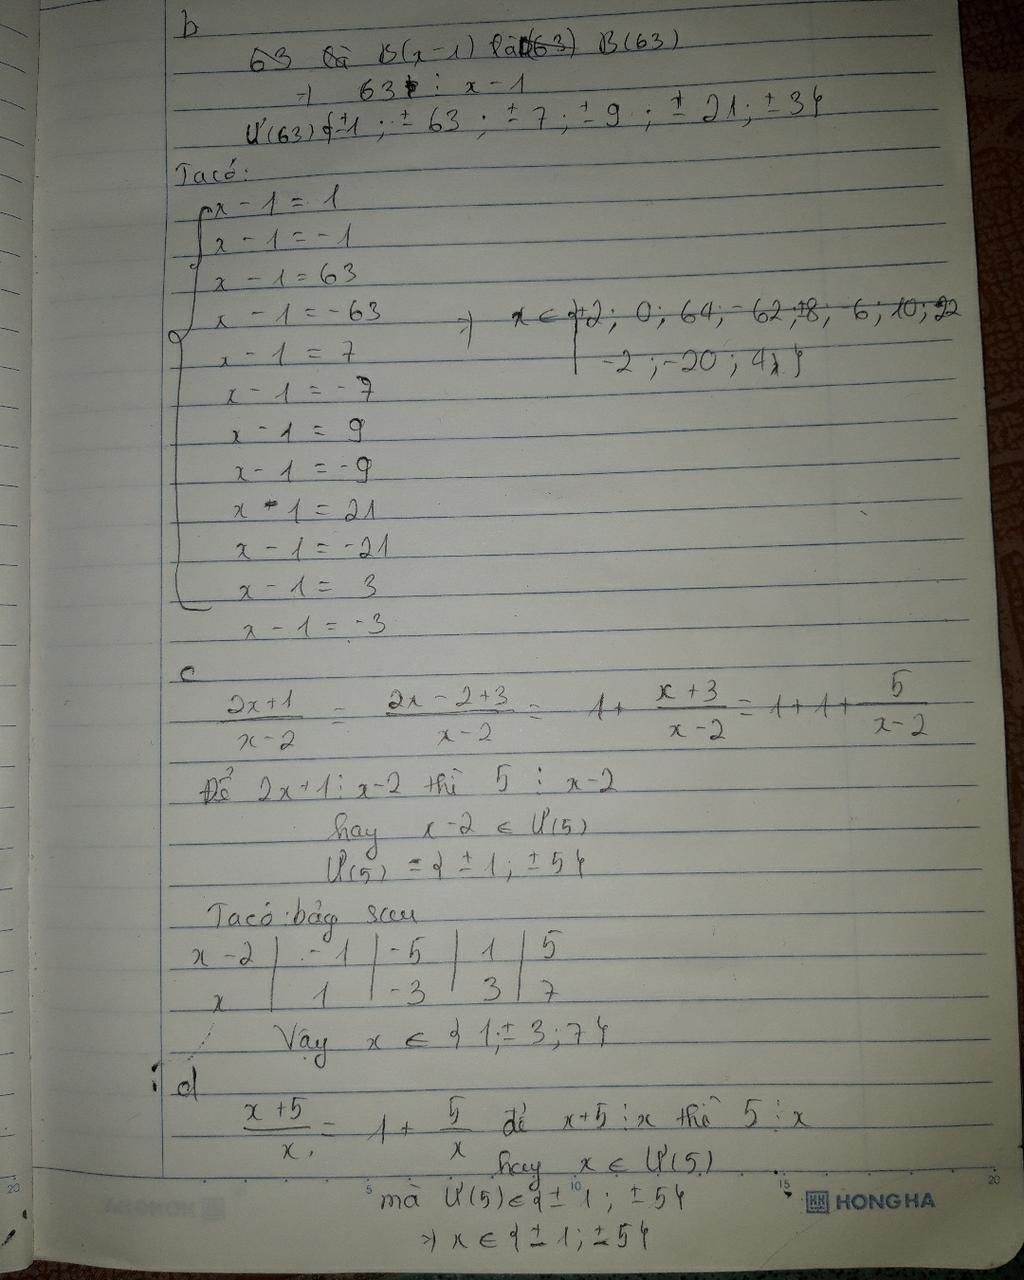 b
63 là B(x-1) là B(63)
=> 63 ⋮ x - 1
Ư(63) {±1 ; ±63 ; ±7 ; ±9 ; ±21 ; ±3}
Ta có:
x - 1 = 1
x - 1 = -1
x - 1 = 63
x - 1 = -63 => x ∈ {±2 ; 0 ; 64 ; -62 ; ±8 ; -6 ; 10 ; 22
x - 1 = 7 -2 ; -20 ; 4 }
x - 1 = -7
x - 1 = 9
x - 1 = -9
x - 1 = 21
x - 1 = -21
x - 1 = 3
x - 1 = -3
c
(2x+1)/(x-2) = (2x-2+3)/(x-2) = 1 + (x+3)/(x-2) = 1+1+ 5/(x-2)
Để 2x+1 ⋮ x-2 thì 5 ⋮ x-2
hay x-2 ∈ Ư(5)
Ư(5) = {±1 ; ±5}
Ta có: bảg sau
x-2 | -1 | -5 | 1 | 5
x | 1 | -3 | 3 | 7
Vậy x ∈ {1 ; ±3 ; 7}
d
(x+5)/x = 1 + 5/x để x+5 ⋮ x thì 5 ⋮ x
hay x ∈ Ư(5)
mà Ư(5) ∈ {±1 ; ±5}
=> x ∈ {±1 ; ±5}
5 10 15 20
20
HONG HA